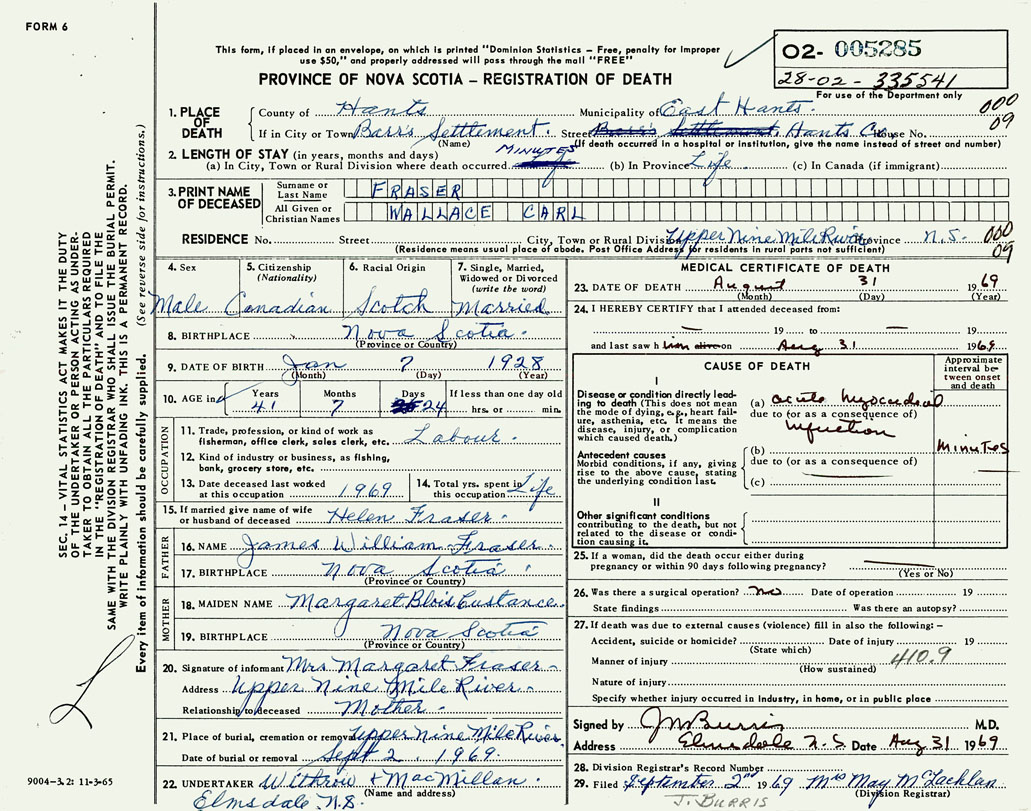 FORM 6
This form, if placed in an envelope, on which is printed "Dominion Statistics – Free, penalty for improper
use $50," and properly addressed will pass through the mail "FREE"
PROVINCE OF NOVA SCOTIA – REGISTRATION OF DEATH
02- 005285
28-02-335541
For use of the Department only
000
09
SEC. 14 – VITAL STATISTICS ACT MAKES IT THE DUTY
OF THE UNDERTAKER OR PERSON ACTING AS UNDER-
TAKER TO OBTAIN ALL THE PARTICULARS REQUIRED
IN THE "REGISTRATION OF DEATH" AND TO FILE THE
SAME WITH THE DIVISION REGISTRAR WHO SHALL ISSUE THE BURIAL PERMIT.
WRITE PLAINLY WITH UNFADING INK. THIS IS A PERMANENT RECORD.
Every item of information should be carefully supplied. (See reverse side for instructions.)
1. PLACE OF DEATH
County of Hants Municipality of East Hants.
If in City or Town Barr's Settlement. Street Settlement, Hants Co. House No.
(Name) (If death occurred in a hospital or institution, give the name instead of street and number)
2. LENGTH OF STAY (in years, months and days) MINUTES
(a) In City, Town or Rural Division where death occurred (b) In Province Life (c) In Canada (if immigrant)
3. PRINT NAME OF DECEASED
Surname or Last Name FRASER
All Given or Christian Names WALLACE CARL
RESIDENCE No. Street City, Town or Rural Division Upper Nine Mile River Province N.S. 000
(Residence means usual place of abode. Post Office Address for residents in rural parts not sufficient) 09
4. Sex
Male
5. Citizenship (Nationality)
Canadian
6. Racial Origin
Scotch
7. Single, Married, Widowed or Divorced (write the word)
Married
8. BIRTHPLACE Nova Scotia.
(Province or Country)
9. DATE OF BIRTH Jan 7 1928
(Month) (Day) (Year)
10. AGE in Years Months Days If less than one day old
41 7 24 hrs. or min.
OCCUPATION
11. Trade, profession or kind of work as fisherman, office clerk, sales clerk, etc. Labour.
12. Kind of industry or business, as fishing, bank, grocery store, etc.
13. Date deceased last worked at this occupation 1969
14. Total yrs. spent in this occupation Life
15. If married give name of wife or husband of deceased Helen Fraser.
FATHER
16. NAME James William Fraser.
17. BIRTHPLACE Nova Scotia.
(Province or Country)
MOTHER
18. MAIDEN NAME Margaret Blois Custance.
19. BIRTHPLACE Nova Scotia
(Province or Country)
20. Signature of informant Mrs Margaret Fraser
Address Upper Nine Mile River
Relationship to deceased Mother.
21. Place of burial, cremation or removal Upper Nine Mile River
Date of burial or removal Sept 2, 1969.
22. UNDERTAKER Withrow + MacMillan.
(Name and address)
Elmsdale N.S.
MEDICAL CERTIFICATE OF DEATH
23. DATE OF DEATH August 31 1969
(Month) (Day) (Year)
24. I HEREBY CERTIFY that I attended deceased from:
— 19 to — 19
and last saw him alive on Aug 31 1969
CAUSE OF DEATH
Approximate interval between onset and death
I
Disease or condition directly leading to death (This does not mean the mode of dying, e.g., heart failure, asthenia, etc. It means the disease, injury, or complication which caused death.)
(a) acute myocardial
due to (or as a consequence of)
infarction
Antecedent causes
Morbid conditions, if any, giving rise to the above cause, stating the underlying condition last.
(b) minutes
due to (or as a consequence of)
(c)
II
Other significant conditions
contributing to the death, but not related to the disease or condition causing it.
25. If a woman, did the death occur either during
pregnancy or within 90 days following pregnancy? —
(Yes or No)
26. Was there a surgical operation? no Date of operation 19
State findings Was there an autopsy?
27. If death was due to external causes (violence) fill in also the following: –
Accident, suicide or homicide? Date of injury 19
(State which)
Manner of injury 410.9
(How sustained)
Nature of injury
Specify whether injury occurred in Industry, in home, or in public place
Signed by J M Burris M.D.
Address Elmsdale N.S. Date Aug 31 1969
28. Division Registrar's Record Number
29. Filed September 2nd 1969 Mrs May McLachlan
(Division Registrar)
J. BURRIS
9004-3.2: 11-3-65